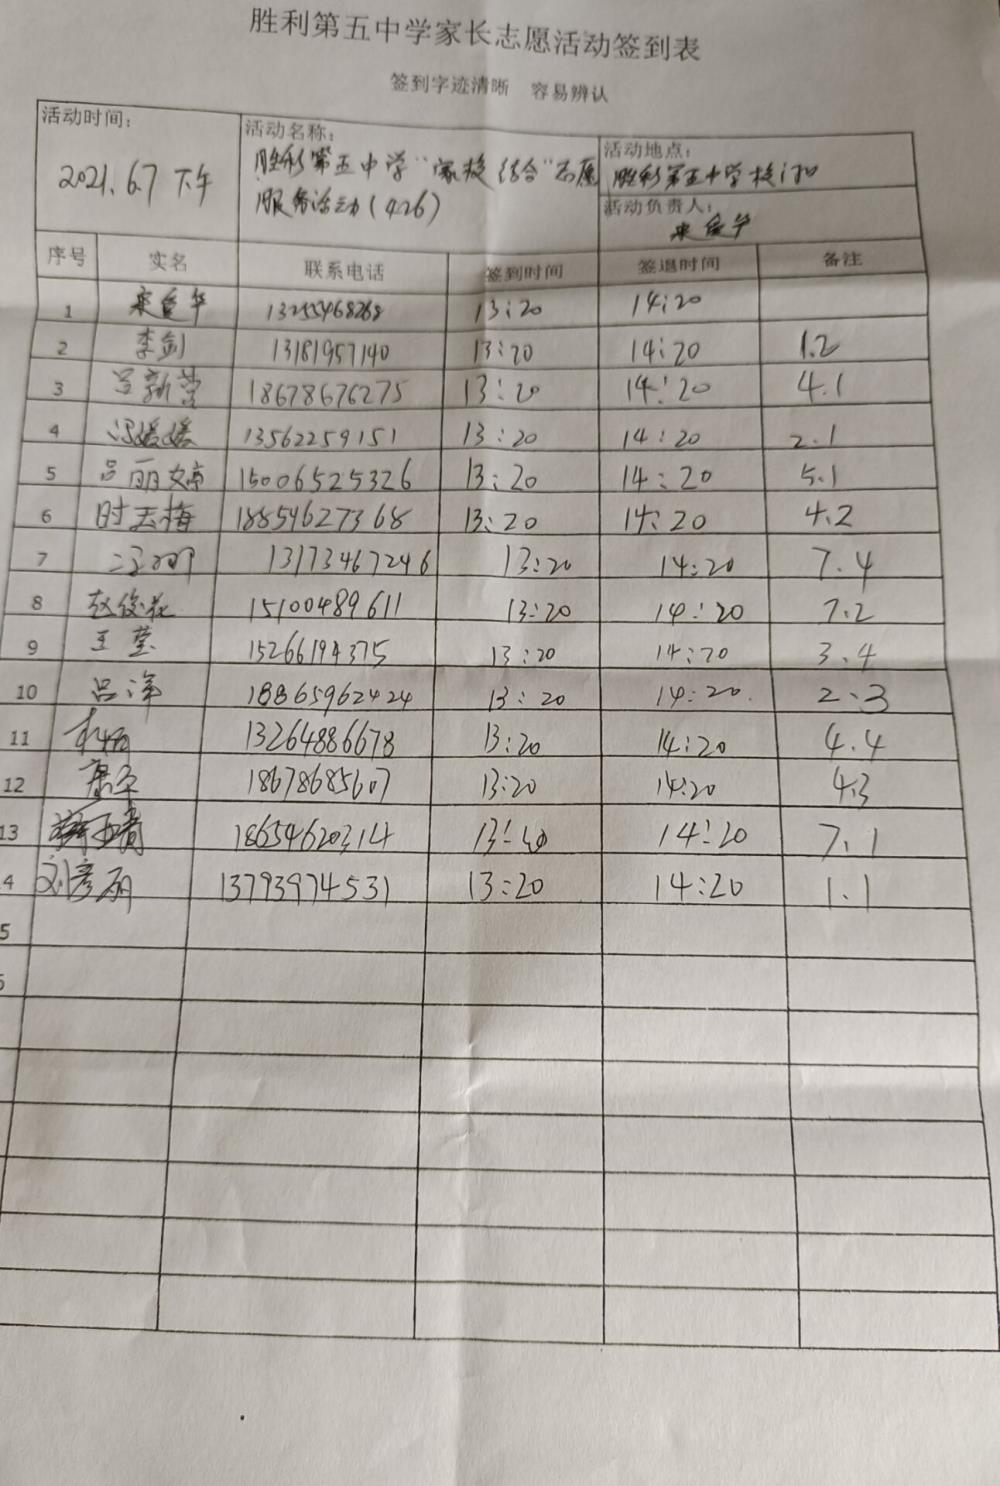 胜利第五中学家长志愿活动签到表
签到字迹清晰 容易辨认
活动时间：
2021.6.7 下午
活动名称：
胜利第五中学"家校结合"志愿
服务活动(426)
活动地点：
胜利第五中学校门口
活动负责人：
序号 实名 联系电话 签到时间 签退时间 备注
1 13255468268 13:20 14:20
2 李剑 13181957140 13:20 14:20 1.2
3 吕新营 18678676275 13:20 14:20 4.1
4 冯媛媛 13562259151 13:20 14:20 2.1
5 吕丽婷 15006525326 13:20 14:20 5.1
6 时玉梅 18854627368 13:20 14:20 4.2
7 13173467246 13:20 14:20 7.4
8 赵俊花 15100489611 13:20 14:20 7.2
9 王莹 15266194375 13:20 14:20 3.4
10 吕萍 18865962424 13:20 14:20 2.3
11 13264886678 13:20 14:20 4.4
12 18678685607 13:20 14:20 4.3
13 18654620314 14:20 7.1
4 刘彦丽 13793974531 13:20 14:20 1.1
5